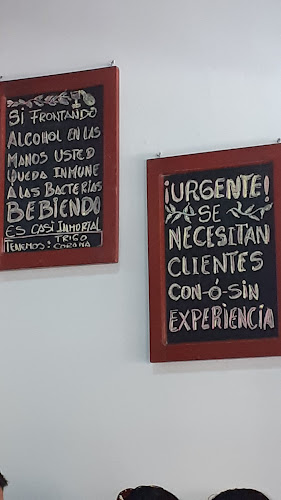 SI FRONTANDO
ALCOHOL EN LAS
MANOS USTED
QUEDA INMUNE
A LAS BACTERIAS
BEBIENDO
ES CASI INMORTAL
TENEMOS: TRIGO
CORONA
¡URGENTE!
SE
NECESITAN
CLIENTES
CON-Ó-SIN
EXPERIENCIA